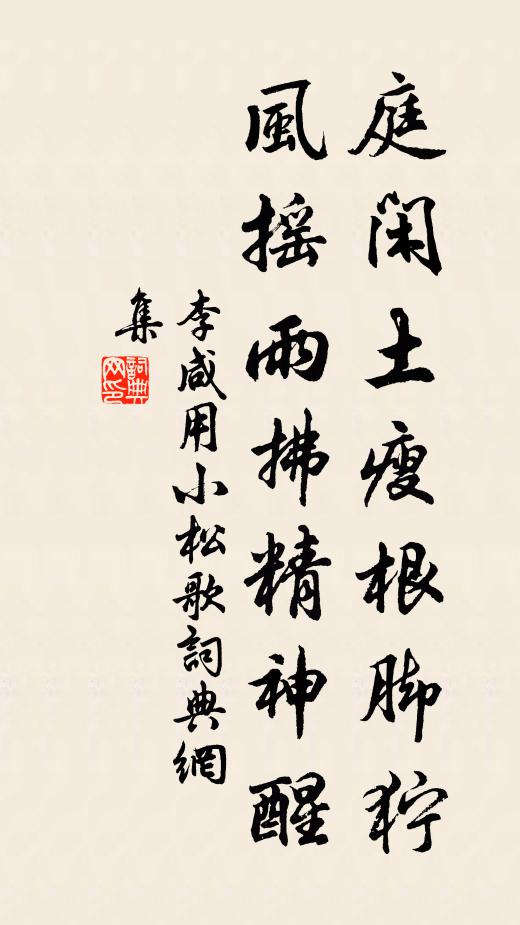 庭閑土瘦根脚狞
風摇雨拂精神醒
李咸用小松歌詞典網
集
詞典网印